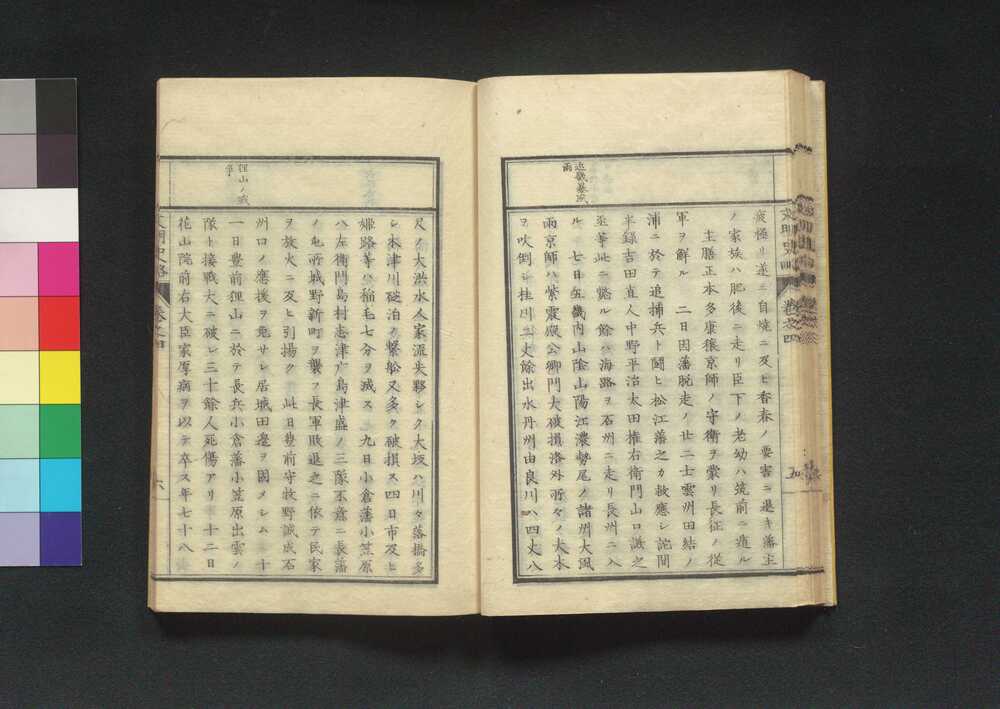 近畿暴風
雨
疲怪リ遂ニ自燒ニ及ヒ香春ノ要害ニ退キ藩主
ノ家族ハ肥後ニ走リ臣下ノ老幼ハ筑前ニ進ル
主膳正本多康穣京師ノ守衛ヲ蒙リ長征ノ從
軍ヲ解ル 二日因藩脱走ノ廿二士雲州田結ノ
浦ニ於テ追捕兵ト鬪ヒ松江藩之カ救應シ詫間
半録吉田直人中野平治太田權右衛門山口謙之
丞等此ニ斃ル餘ハ海路ヲ石州ニ走リ長州ニ入
ル 七日五畿内山陰山陽江濃勢尾ノ諸州大風
雨京師ハ紫宸殿公卿門大破損洛外所々ノ大木
ヲ吹倒シ桂川二丈餘出水丹州由良川ハ四丈八
五
狸山ノ戰
爭
尺ノ大洪水人家流失夥シク大坂ハ川々落橋多
シ木津川碇泊ノ繋舩又多ク破損ス四日市及ヒ
姫路等ハ稲毛七分ヲ減ス 九日小倉藩小笠原
八左衛門島村志津广島津盛ノ三隊不意ニ長藩
ノ屯所城野新町ヲ襲フ長軍敗退之ニ依テ民家
ヲ放火ニ及ヒ引揚ク 此日豊前守牧野誠成石
州口ノ應援ヲ免サレ居城田邊ヲ固メシム 十
一日豊前狸山ニ於テ長兵小倉藩小笠原出雲ノ
隊ト接戰大ニ破レ三十餘人死傷アリ 十二日
花山院前右大臣家厚病ヲ以テ卒ス年七十八
文明史略 卷之四
六